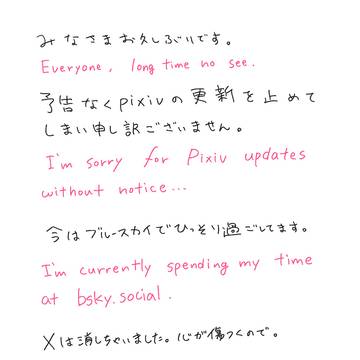 みなさまお久しぶりです。
Everyone, long time no see.
予告なくpixivの更新を止めて
しまい申し訳ございません。
I'm sorry for Pixiv updates
without notice...
今はブルースカイでひっそり過ごしてます。
I'm currently spending my time
at bsky.social.
Xは消しちゃいました。心が傷つくので。